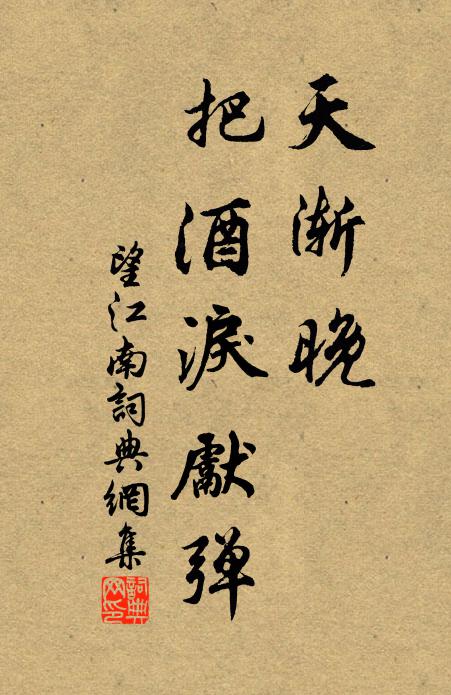 天漸晚
把酒淚獻彈
望江南詞典網集
詞典网印